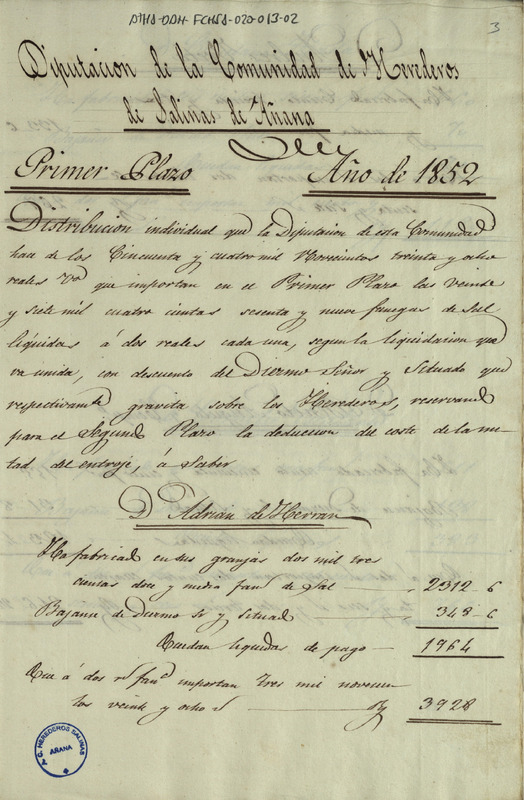 ATHA-DAH-FCHSA-020-013-02
3
Diputacion de la Comunidad de Herederos
de Salinas de Añana
Primer Plazo Año de 1852
Distribucion individual que la Diputacion de esta Comunidad
hace de los Cincuenta y cuatro mil Novecientos treinta y ocho
reales Von que importan en el Primer Plazo las veinte
y siete mil cuatro cientas sesenta y nueve fanegas de Sal
liquidas á dos reales cada una, segun la liquidacion que
va unida, con descuento del Diezmo Señor y Situado que
respectivamte gravita sobre los Herederos, reservando
para el Segundo Plazo la deduccion del coste de la mi-
tad del entroje, á Saber
D. Adrian de Herran
Ha fabricado en sus granjas dos mil tres
cientas doce y media fans de Sal 2312 6
Bajanse de Diezmo Sr y Situado 348 6
Quedan liquidas de pago 1964
Que á dos rs fana importan tres mil novecien
tos veinte y ocho rs 3928
C. HEREDEROS SALINAS
AÑANA